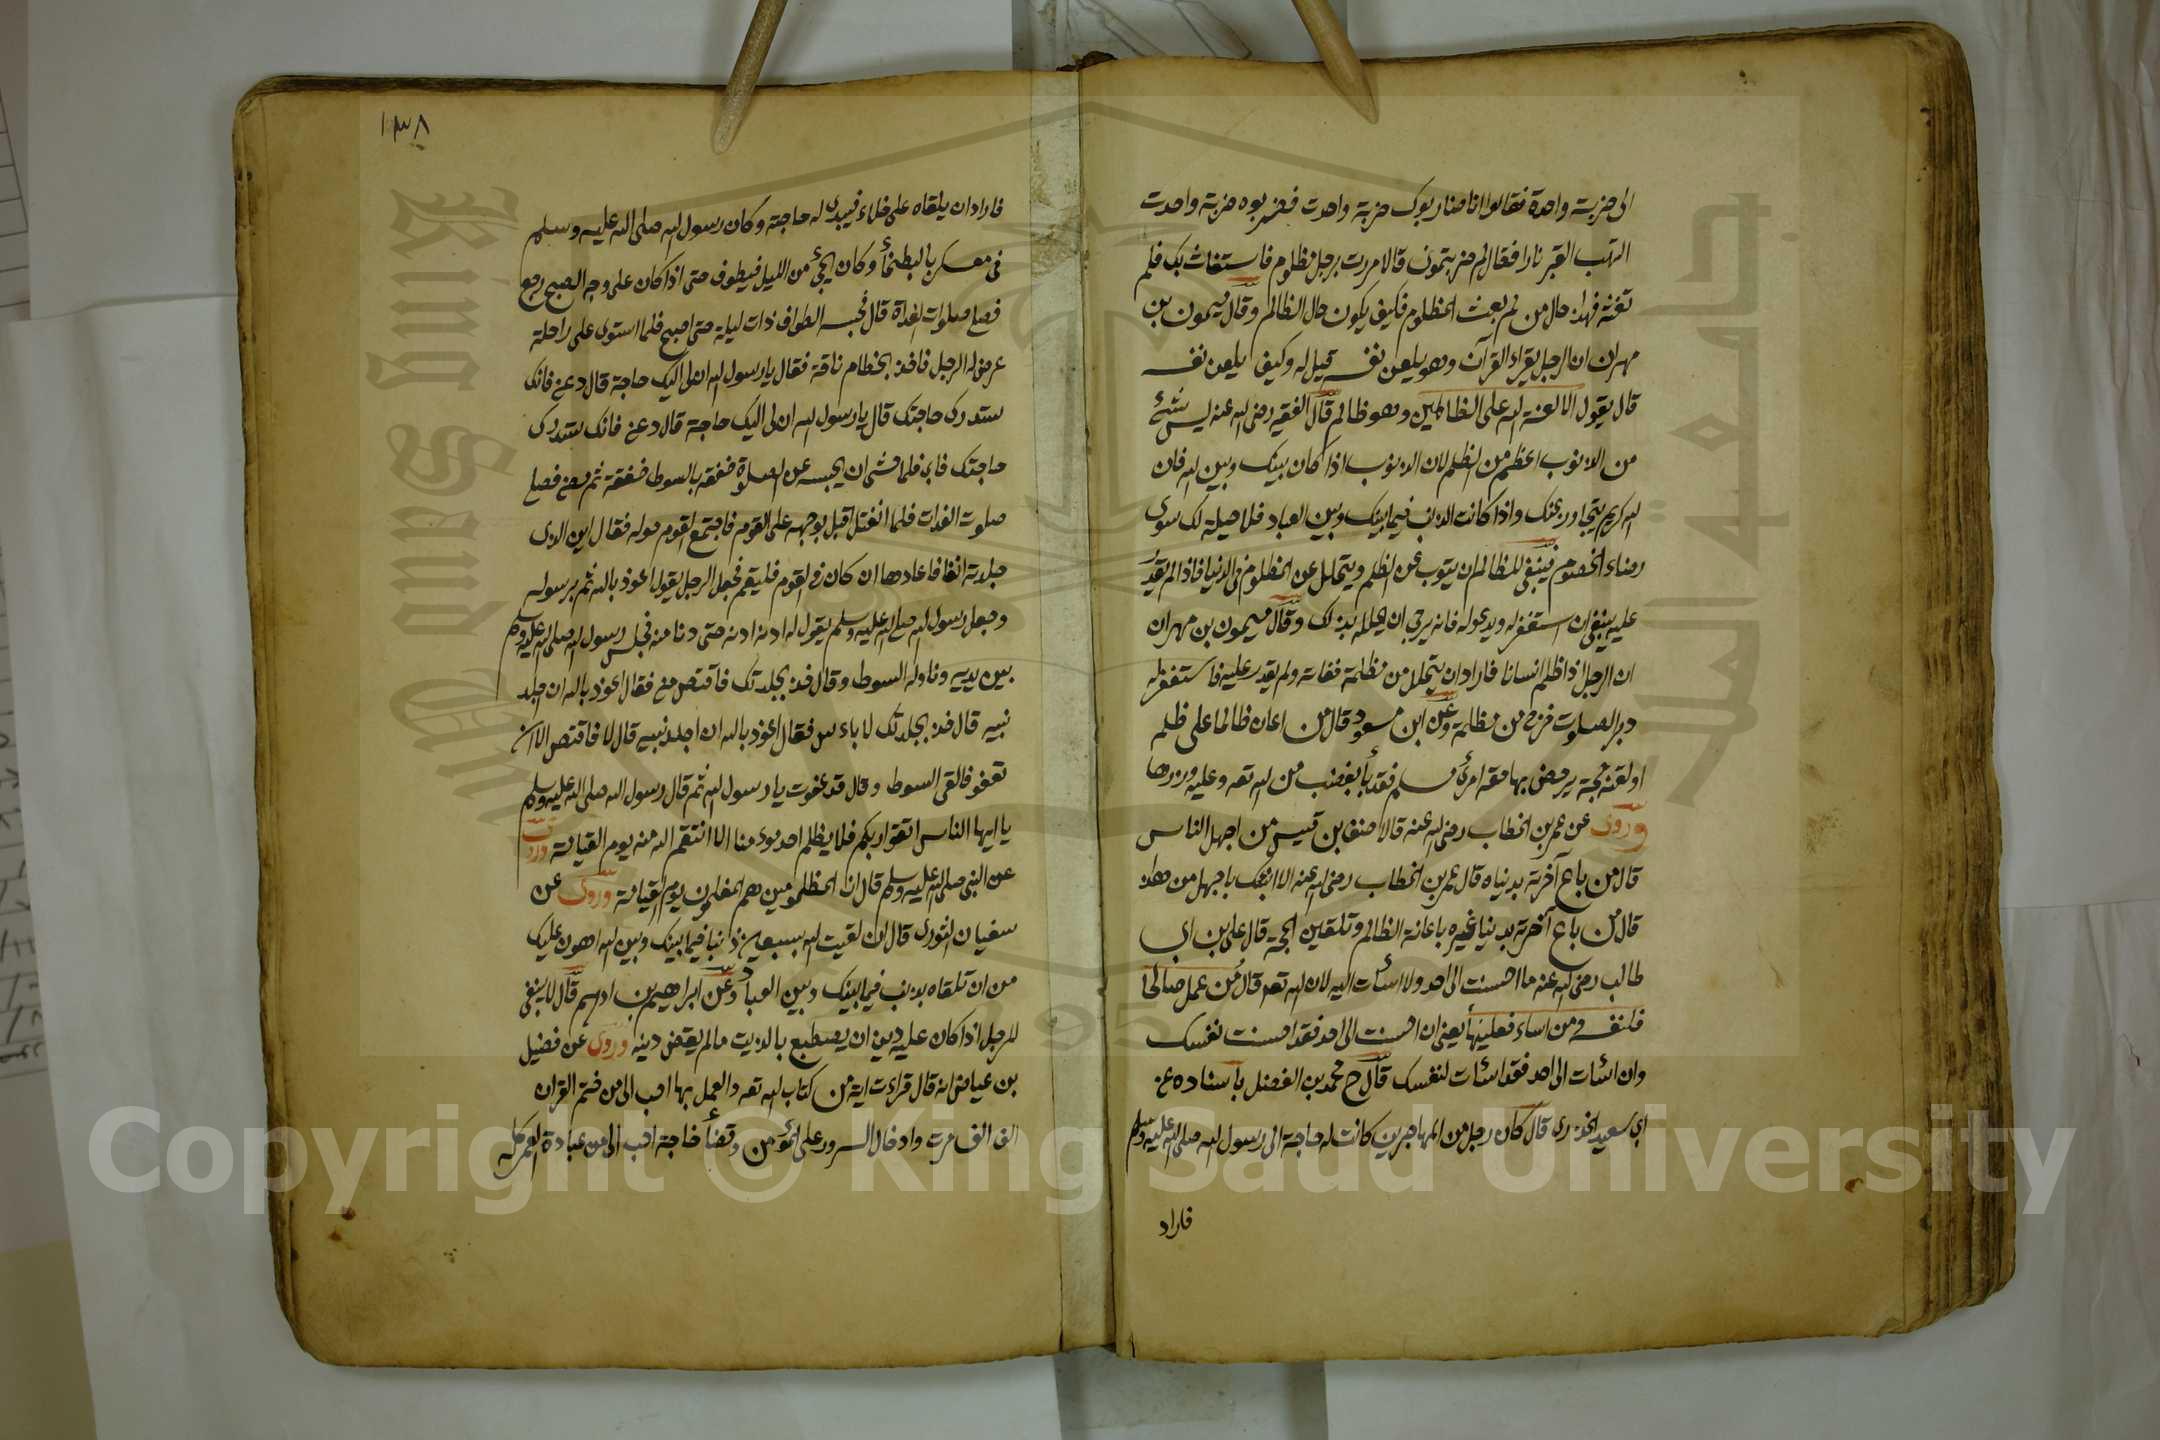 الى ضربة واحدة فقالوا انا ضاربوك ضربة واحدت فضربوه ضربة واحدت
التهب القبر نارا فقال لم ضربتمونى قالا مررت برجل مظلوم فاستغاث بك فلم
تغثه فهذا حال من لم يغث المظلوم فكيف يكون حال الظالم وقال ميمون بن
مهران ان الرجل يقراء القرآن وهو يلعن نفسه قيل له وكيف يلعن نفسه
قال يقول الا لعنة الله على الظالمين وهو ظالم قال الفقيه رضى الله عنه ليس شئ
من الذنوب اعظم من الظلم لان الذنوب اذا كان بينك وبين الله فان
الله كريم يتجاوز عنك واذا كانت الذنب فيما بينك وبين العباد فلا حيلة لك سوى
رضاء الخصوم فينبغى للظالم ان يتوب عن الظلم ويتحلل عن المظلوم فى الدنيا فاذا لم يقدر
عليه ينبغى ان استغفر له ويدعو له فانه يرجى ان يحلله بذلك وقال ميمون بن مهران
ان الرجل اذا ظلم انسانا فاراد ان يتحلل من مظلمة ففاته ولم يقدر عليه فاستغفر له
دبر الصلوت خرج من مظلمة وعن ابن مسعود قال من اعان ظالما على ظلم
او لقنه حجة يدحض بها حق امرئ مسلم فقد بأ بغضب من الله تعه وعليه وزرها
وروى عن عمر بن الخطاب رضى الله عنه قال لاحنف بن قيس من اجهل الناس
قال من باع آخرته بدنياه قال عمر بن الخطاب رضى الله عنه الا انبئك باجهل من هذا
قال من باع آخرته بدنيا غيره باعانة الظالم وتلقين الحجة قال على بن ابى
طالب رضى الله عنه ما احسنت الى احد ولا اسأت اليه لان الله تعه قال من عمل صالحا
فلنفسه ومن اساء فعليها يعنى ان احسنت الى احد فقد احسنت نفسك
وان اسئات الى احد فقد اسئات لنفسك قال ح محمد بن الفضل باسناده عن
ابى سعيد الخدرى قال كان رجل من المهاجرين كانت له حاجة الى رسول الله صلى الله عليه وسلم
فاراد
١٣٨
فاراد ان يلقاه على خلاء فيبدى له حاجته وكان رسول الله صلى الله عليه وسلم
فى معسكر بالبطحأ وكان يجئ من الليل فيطوف حتى اذا كان على وجه الصبح رجع
فصلى صلوات الغداة قال فحبسه الطواف ذات ليلة حتى اصبح فلما استوى على راحلة
عرض له الرجل فاخذ بخطام ناقة فقال يا رسول الله ان لى اليك حاجة قال دعنى فانك
ستدرك حاجتك قال يا رسول الله ان لى اليك حاجة قال دعنى فانك ستدرك
حاجتك فابى فلما خشى ان يحبسه عن الصلوة خفقه بالسوط خفقة ثم مضى فصلى
صلوت الغدات فلما انفتل اقبل بوجهه على القوم فاجتمع القوم حوله فقال اين الذى
جلدته انفا فاعادها ان كان فى القوم فليقم فجعل الرجل يقول اعوذ بالله ثم برسوله
وجعل رسول الله صلى الله عليه وسلم يقول له ادنه ادنه حتى دنا منه فجلس رسول الله صلى الله عليه وسلم
بين يديه وناوله السوط وقال خذ بجلدتك فاقتص منى فقال اعوذ بالله ان اجلد
نبيه قال خذ بجلدتك لا باءس فقال اعوذ بالله ان اجلد نبيه قال لا فاقتص الا ان
تعفو فالقى السوط وقال قد عفوت يا رسول الله ثم قال رسول الله صلى الله عليه وسلم
يا ايها الناس اتقوا ربكم فلا يظلم احد مؤمنا الا انتقم الله منه يوم القيامة وروى
عن النبى صلى الله عليه وسلم قال ان المظلومين هم المفلحون يوم القيامة وروى عن
سفيان الثورى قال ان لقيت الله بسبعين ذنبا فيما بينك وبين الله اهون عليك
من ان تلقاه بذنب فيما بينك وبين العباد وعن ابراهيم بن ادهم قال لا ينبغى
للرجل اذا كان عليه دين ان يصطبغ بالزيت ما لم يقض دينه وروى عن فضيل
بن عياض انه قال قراءت اية من كتاب الله تعه والعمل بها احب الى من ختم القران
الف الف مرت وادخال السرور على المؤمن وقضأ حاجة احب الى من عبادة العمر كله
Copyright © King Saud University
King Saud University
جامعة الملك سعود
1957